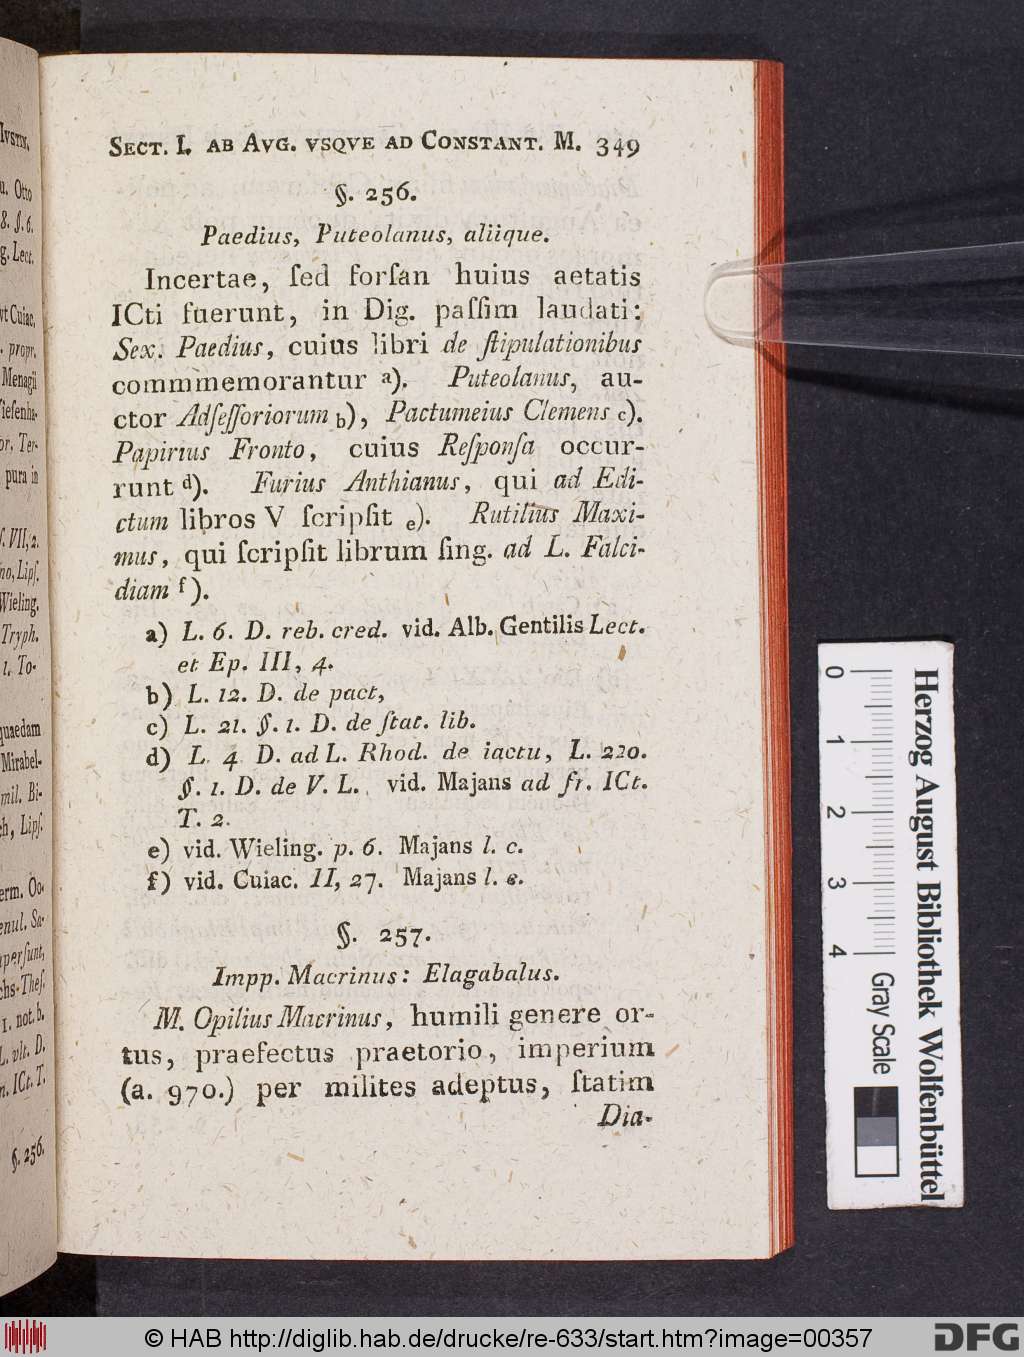 SECT. I. AB AVG. VSQVE AD CONSTANT. M. 349
§. 256.
Paedius, Puteolanus, aliique.
Incertae, ſed forſan huius aetatis
ICti fuerunt, in Dig. paſſim laudati:
Sex. Paedius, cuius libri de ſtipulationibus
commmemorantur a). Puteolanus, au-
ctor Adſeſſoriorum b), Pactumeius Clemens c).
Papirius Fronto, cuius Reſponſa occur-
runt d). Furius Anthianus, qui ad Edi-
ctum libros V ſcripſit e). Rutilius Maxi-
mus, qui ſcripſit librum ſing. ad L. Falci-
diam f).
a) L. 6. D. reb. cred. vid. Alb. Gentilis Lect.
et Ep. III, 4.
b) L. 12. D. de pact,
c) L. 21. §. 1. D. de ſtat. lib.
d) L. 4 D. ad L. Rhod. de iactu, L. 220.
§. 1. D. de V. L. vid. Majans ad fr. ICt.
T. 2.
e) vid. Wieling. p. 6. Majans l. c.
f) vid. Cuiac. II, 27. Majans l. c.
§. 257.
Impp. Macrinus: Elagabalus.
M. Opilius Macrinus, humili genere or-
tus, praefectus praetorio, imperium
(a. 970.) per milites adeptus, ſtatim
Dia-
IVSTIN.
Otto
8. §. 6.
g. Lect.
vt Cuiac.
propr.
Menagii
or. Ter-
pura in
VII, 2.
no, Lipſ.
Wieling.
Tryph.
1. To-
quaedam
Mirabel-
mil. Bi-
ch, Lipſ.
erm. Oo-
enul. Sa-
perſunt,
chs. Theſ.
1. not. b.
L. vlt. D.
n. ICt. T.
§. 256.
0 1 2 3 4
Gray Scale
Herzog August Bibliothek Wolfenbüttel
© HAB http://diglib.hab.de/drucke/re-633/start.htm?image=00357
DFG